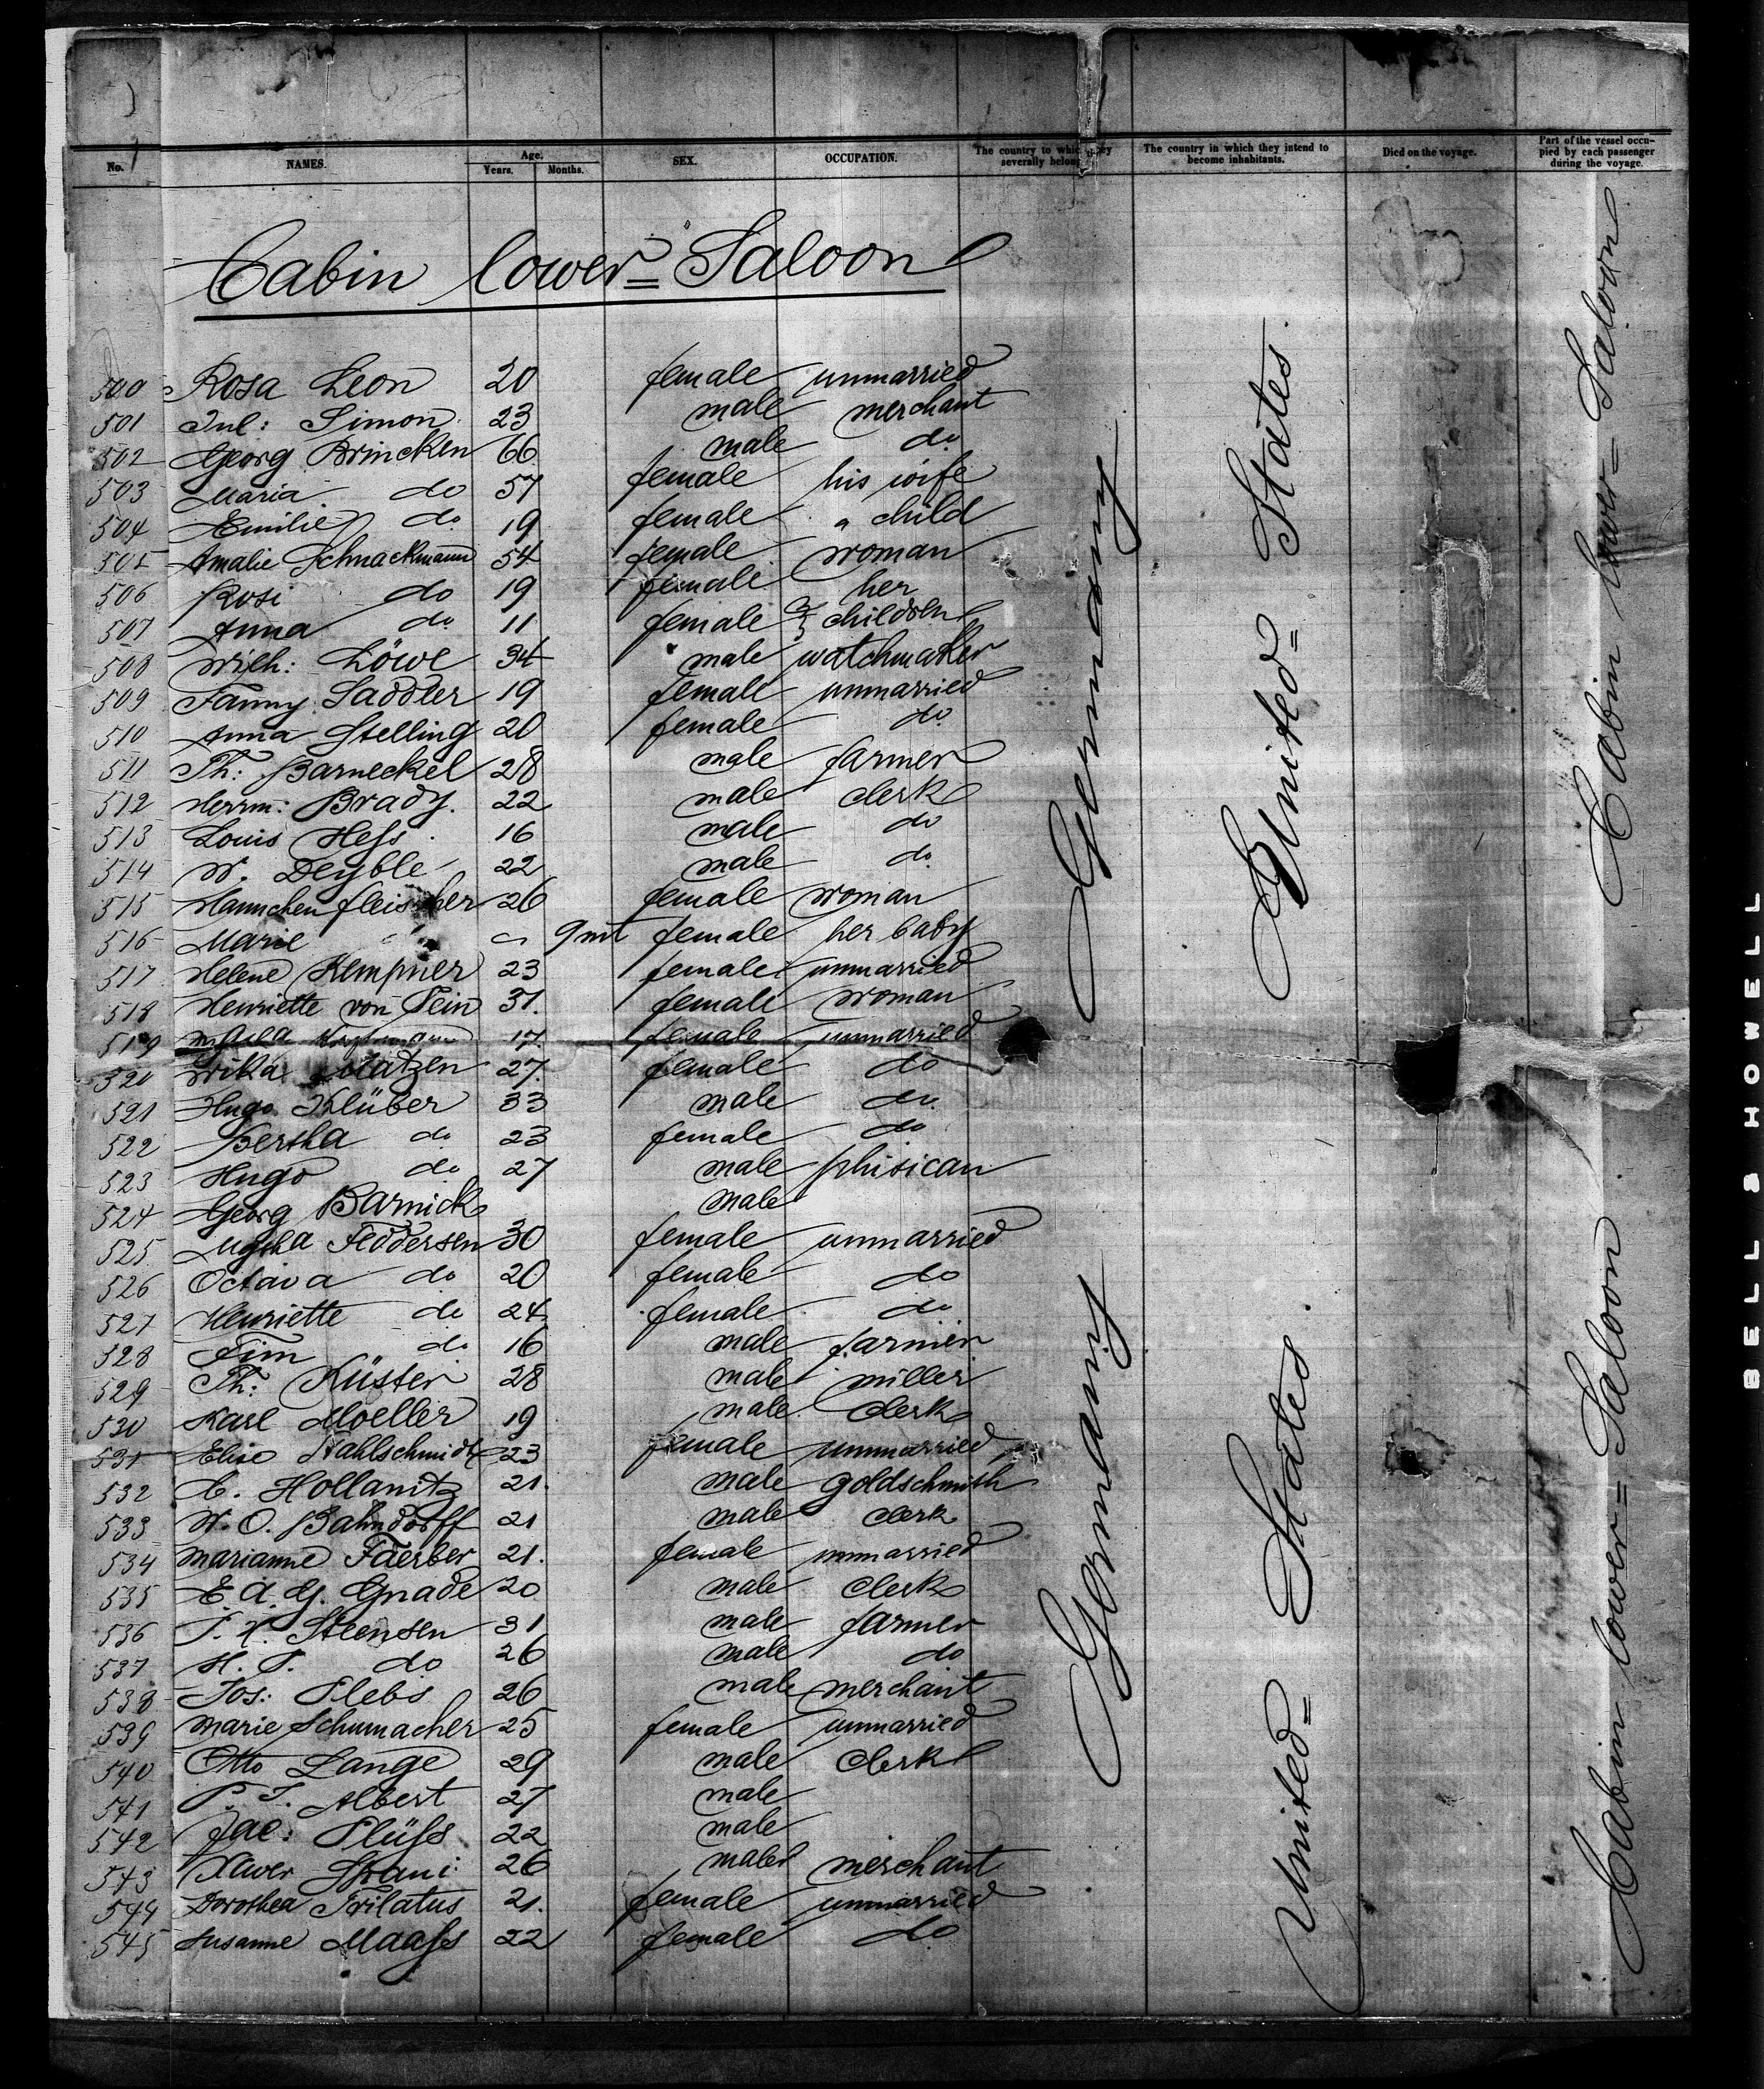 No. NAMES. Age. Years. Months. SEX. OCCUPATION. The country to which they severally belong. The country in which they intend to become inhabitants. Died on the voyage. Part of the vessel occupied by each passenger during the voyage.
Cabin lower= Saloon
500 Rosa Leon 20 female unmarried
501 Jul: Simon 23 male merchant
502 Georg Brincken 66 male do
503 Maria do 57 female his wife
504 Emilie do 19 female " child
505 Amalie Schnackmann 54 female woman
506 Rosi do 19 female her
507 Anna do 11 female children
508 Wilh: Löwe 34 male watchmaker
509 Fanny Saddler 19 female unmarried
510 Anna Stelling 20 female do
511 Th: Barneckel 28 male farmer
512 Herrm: Brady. 22 male clerk
513 Louis Hess 16 male do
514 W. Deyble 22 male do
515 Hannchen fleischer 26 female woman
516 Marie 9 mt female her baby
517 Helene Kempner 23 female unmarried
518 Henriette von Fein 31. female woman
519 17. female unmarried
520 Matzen 27. female do
521 Hugo Klüber 33 male do
522 Bertha do 23 female do
523 Hugo do 27 male phisican
524 Georg Barnick male
525 Feddersen 30 female unmarried
526 Octava do 20 female do
527 Henriette do 24 female do
528 Tim do 16 male farmer
529 Th: Küster 28 male miller
530 Karl Moeller 19 male clerk
531 Elise Nahlschmidt 23 female unmarried
532 C. Hollanitz 21. male goldschmith
533 W. O. Bahndorff 21 male clerk
534 Marianne Faerber 21. female unmarried
535 E. A. G. Gnade 20 male clerk
536 Steensen 31 male farmer
537 do 26 male do
538 Jos: Plebs 26 male merchant
539 Marie Schumacher 25 female unmarried
540 Otto Lange 29 male Clerk
541 Albert 27 male
542 Jac: Plüss 22 male
543 Xaver 26 male merchant
544 Dorothea Trilatus 21. female unmarried
545 Susanne Maass 22 female do
Germany
Germany
United= States
United= States
Cabin lower= Saloon
Cabin lower= Saloon
BELL & HOWELL